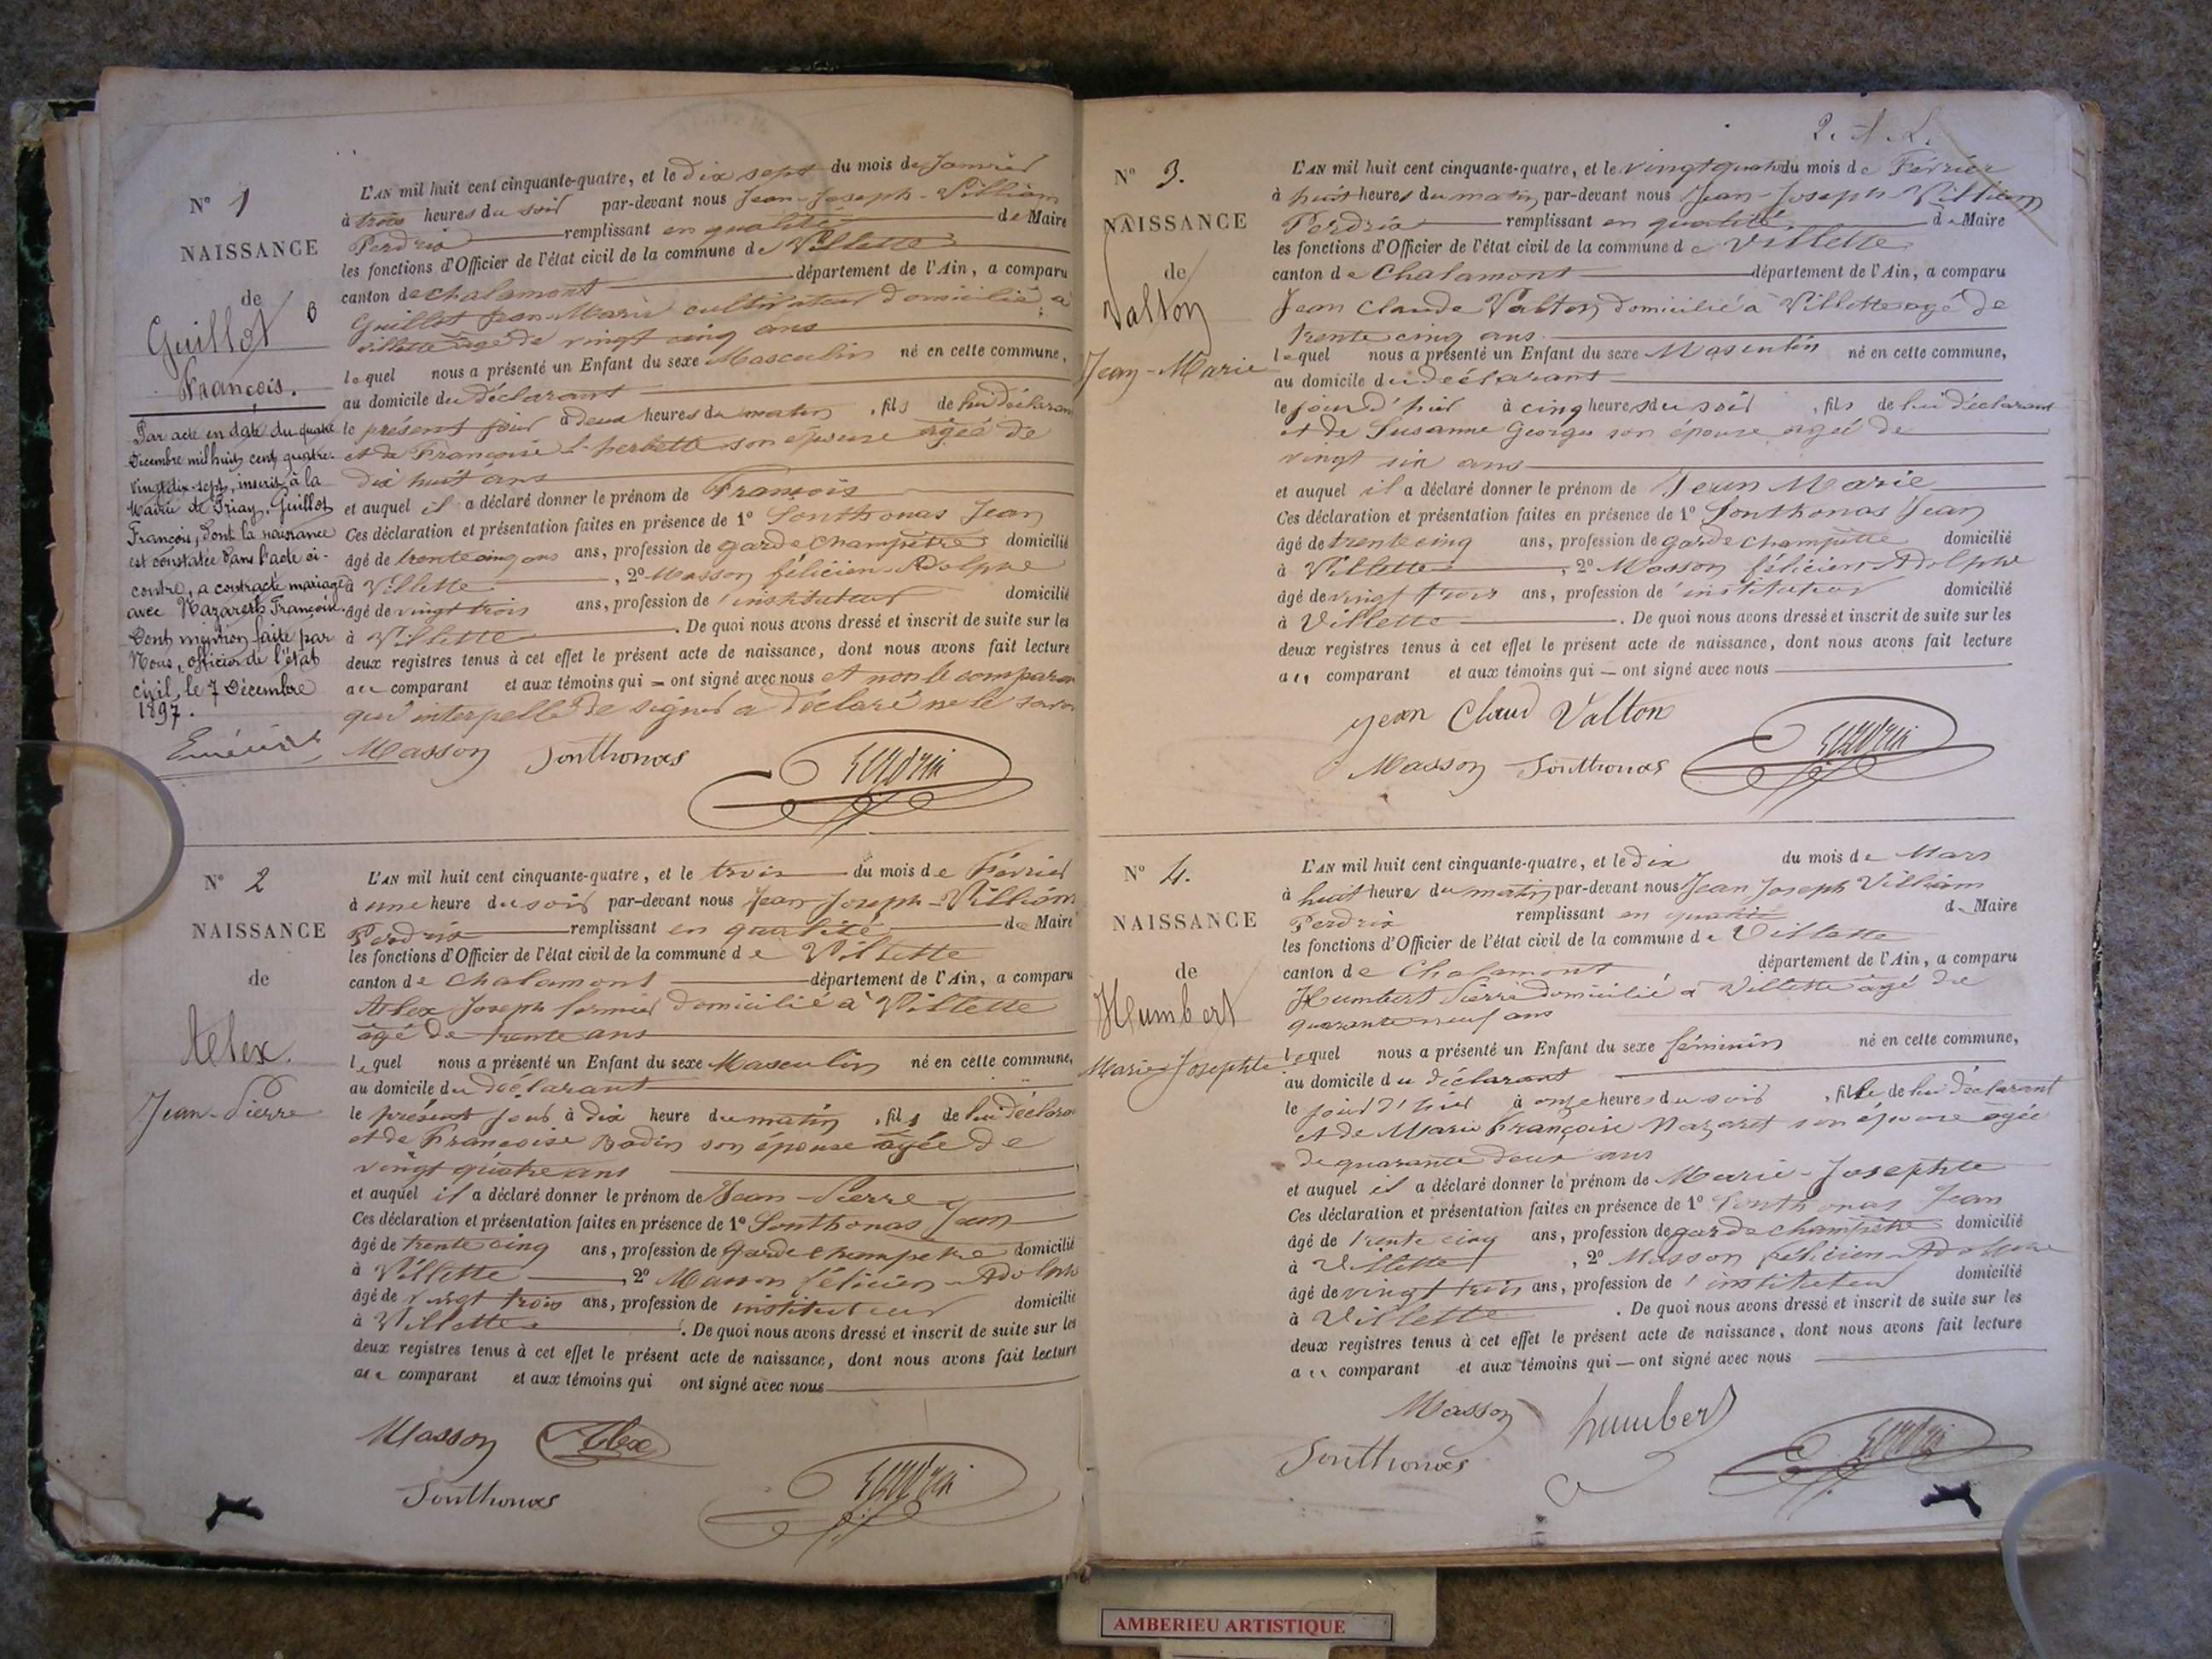 N° 1
NAISSANCE
de
Guillot
François.
Par acte en date du quatre
Décembre mil huit cent quatre-
vingt dix-sept, inscrit à la
Mairie de Priay, Guillot
François, dont la naissance
est constatée dans l'acte ci-
contre, a contracté mariage
avec Nazareth Françoise.
Dont mention faite par
Nous, officier de l'état
civil, le 7 Décembre
1897.
L'AN mil huit cent cinquante-quatre, et le dix sept du mois de Janvier
à trois heures du soir par-devant nous Jean-Joseph-Villiam
Perdrix remplissant en qualité de Maire
les fonctions d'Officier de l'état civil de la commune de Villette
canton de Chalamont département de l'Ain, a comparu
Guillot Jean-Marie cultivateur domicilié à
Villette âgé de vingt cinq ans
lequel nous a présenté un Enfant du sexe Masculin né en cette commune,
au domicile du déclarant
le présent jour à deux heures du matin, fils de lui déclarant
et de Françoise L'herbette son épouse âgée de
dix huit ans
et auquel il a déclaré donner le prénom de François
Ces déclaration et présentation faites en présence de 1° Sonthonas Jean
âgé de trente cinq ans ans, profession de garde champêtre domicilié
à Villette, 2° Masson félicien-Adolphe
âgé de vingt trois ans, profession d'instituteur domicilié
à Villette. De quoi nous avons dressé et inscrit de suite sur les
deux registres tenus à cet effet le présent acte de naissance, dont nous avons fait lecture
au comparant et aux témoins qui = ont signé avec nous et non le comparant
qui interpellé de signer a déclaré ne le savoir
Masson Sonthonas Perdrix
N° 2
NAISSANCE
de
Alex.
Jean-Pierre
L'AN mil huit cent cinquante-quatre, et le trois du mois de Février
à une heure du soir par-devant nous Jean-Joseph-Villiam
Perdrix remplissant en qualité de Maire
les fonctions d'Officier de l'état civil de la commune de Villette
canton de Chalamont département de l'Ain, a comparu
Alex Joseph fermier domicilié à Villette
âgé de trente ans
lequel nous a présenté un Enfant du sexe Masculin né en cette commune,
au domicile du déclarant
le présent jour à dix heure du matin, fils de lui déclarant
et de Françoise Badin son épouse âgée de
vingt quatre ans
et auquel il a déclaré donner le prénom de Jean-Pierre
Ces déclaration et présentation faites en présence de 1° Sonthonas Jean
âgé de trente cinq ans, profession de garde champêtre domicilié
à Villette, 2° Masson félicien-Adolphe
âgé de vingt trois ans, profession de instituteur domicilié
à Villette. De quoi nous avons dressé et inscrit de suite sur les
deux registres tenus à cet effet le présent acte de naissance, dont nous avons fait lecture
au comparant et aux témoins qui ont signé avec nous
Masson Alex
Sonthonas Perdrix
N° 3.
NAISSANCE
de
Valton
Jean-Marie
L'AN mil huit cent cinquante-quatre, et le vingt quatre du mois de Février
à huit heures du matin par-devant nous Jean-Joseph Villiam
Perdrix remplissant en qualité de Maire
les fonctions d'Officier de l'état civil de la commune de Villette
canton de Chalamont département de l'Ain, a comparu
Jean Claude Valton domicilié à Villette agé de
trente cinq ans.
lequel nous a présenté un Enfant du sexe Masculin né en cette commune,
au domicile du déclarant
le jour d'hier à cinq heures du soir, fils de lui déclarant
et de Susanne Georges son épouse agée de
vingt six ans
et auquel il a déclaré donner le prénom de Jean Marie
Ces déclaration et présentation faites en présence de 1° Sonthonas Jean
âgé de trente cinq ans, profession de garde champêtre domicilié
à Villette, 2° Masson félicien Adolphe
âgé de vingt trois ans, profession d'instituteur domicilié
à Villette. De quoi nous avons dressé et inscrit de suite sur les
deux registres tenus à cet effet le présent acte de naissance, dont nous avons fait lecture
au comparant et aux témoins qui — ont signé avec nous
jean Claud Valton
Masson Sonthonas Perdrix
N° 4.
NAISSANCE
de
Humbert
Marie-Josephte
L'AN mil huit cent cinquante-quatre, et le dix du mois de Mars
à huit heures du matin par-devant nous Jean Joseph Villiam
Perdrix remplissant en qualité de Maire
les fonctions d'Officier de l'état civil de la commune de Villette
canton de Chalamont département de l'Ain, a comparu
Humbert Pierre domicilié à Villette âgé de
quarante neuf ans
lequel nous a présenté un Enfant du sexe féminin né en cette commune,
au domicile du déclarant
le jour d'hier à onze heures du soir, fille de lui déclarant
et de Marie Françoise Nazaret son épouse agée
de quarante deux ans
et auquel il a déclaré donner le prénom de Marie-Josephte
Ces déclaration et présentation faites en présence de 1° Sonthonas Jean
âgé de trente cinq ans, profession de garde champêtre domicilié
à Villette, 2° Masson félicien-Adolphe
âgé de vingt trois ans, profession d'instituteur domicilié
à Villette. De quoi nous avons dressé et inscrit de suite sur les
deux registres tenus à cet effet le présent acte de naissance, dont nous avons fait lecture
au comparant et aux témoins qui — ont signé avec nous
Masson humbert
Sonthonas Perdrix
AMBERIEU ARTISTIQUE